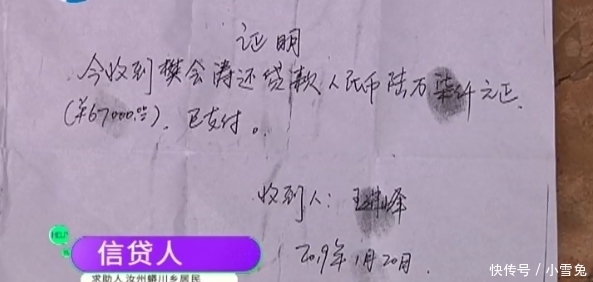 证明
今收到樊会涛还贷款人民币陆万柒仟元正.
(￥67000.00). 已支付。
收到人: 王建峰
2019年1月20日.
HELP
信贷人
求助人 汝州蟒川乡居民
快传号 / 小雪兔